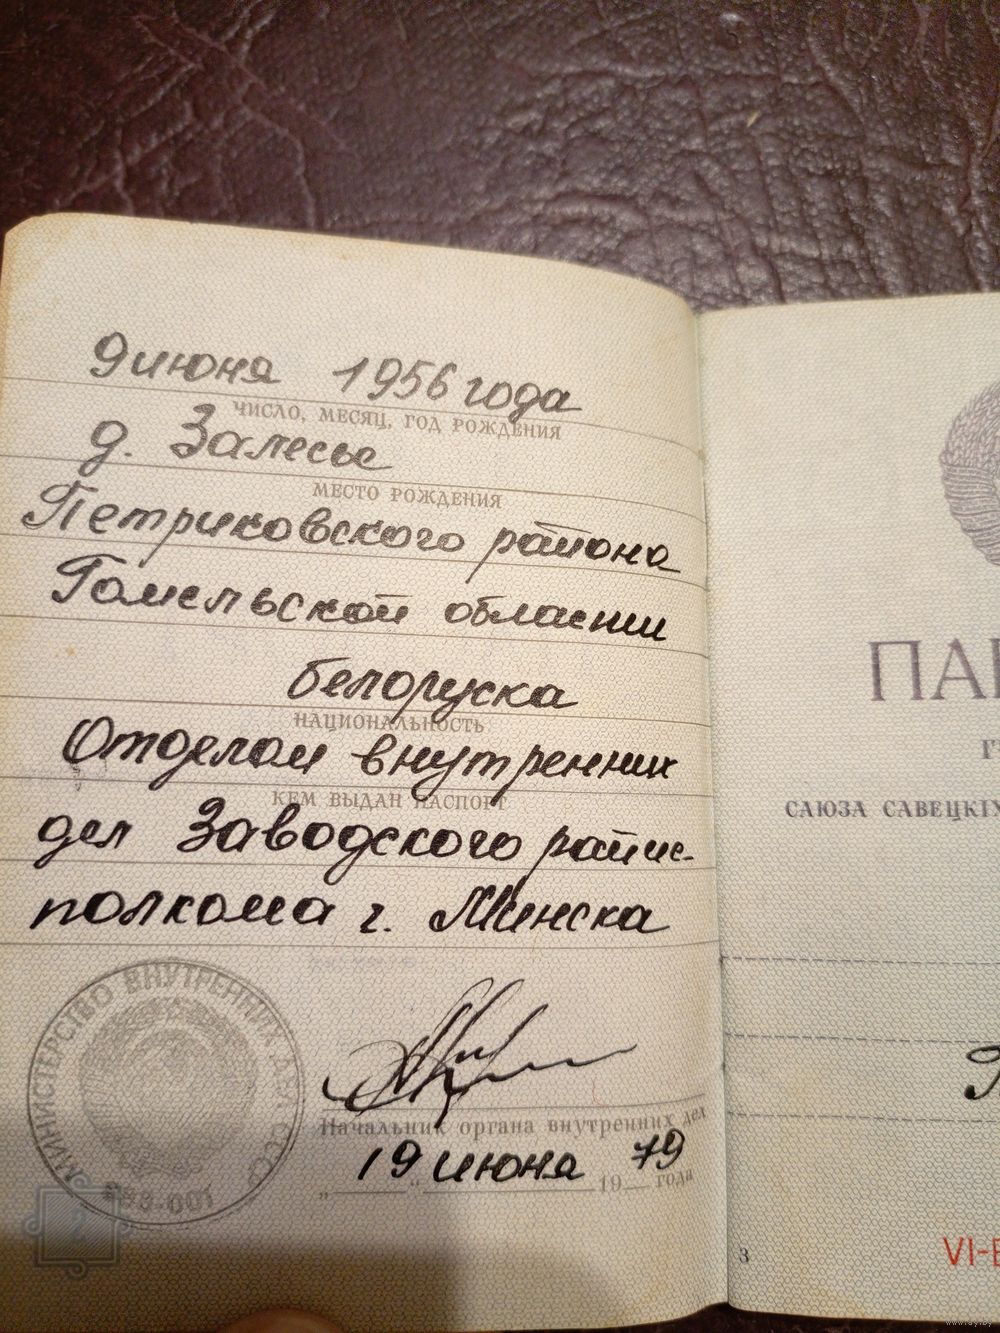 9 июня 1956 года
ЧИСЛО, МЕСЯЦ, ГОД РОЖДЕНИЯ
д. Залесье
МЕСТО РОЖДЕНИЯ
Петриковского района
Гомельской области
белоруска
НАЦИОНАЛЬНОСТЬ
Отделом внутренних
КЕМ ВЫДАН ПАСПОРТ
дел Заводского райис-
полкома г. Минска
МИНИСТЕРСТВО ВНУТРЕННИХ ДЕЛ СССР
Начальник органа внутренних дел
19 июня 79
„ “ 19 года
2
ПА
Г
САЮЗА САВЕЦКІХ
3
VI-
www.ay.by